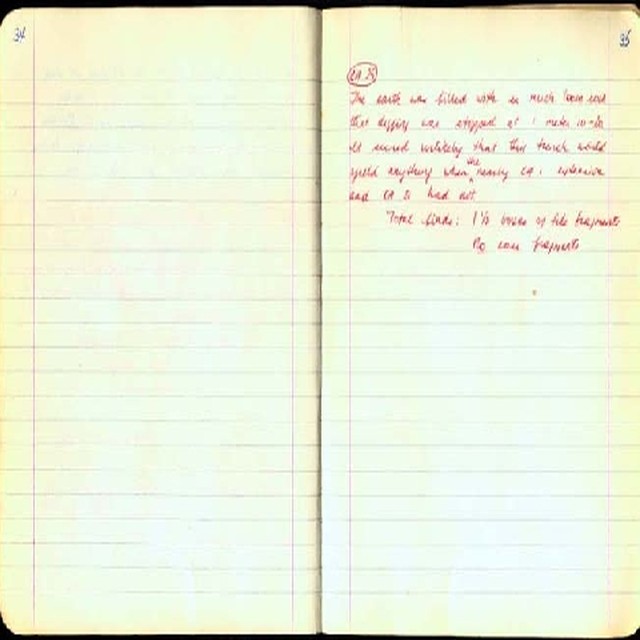 34
35
CA 25
The earth was filled with so much
that digging was stopped at 1 meter
It seemed unlikely that this trench would
yield anything when the nearby CA 1 extension
and CA had not
Total finds: 1 ½ boxes of tile fragments
No fragments